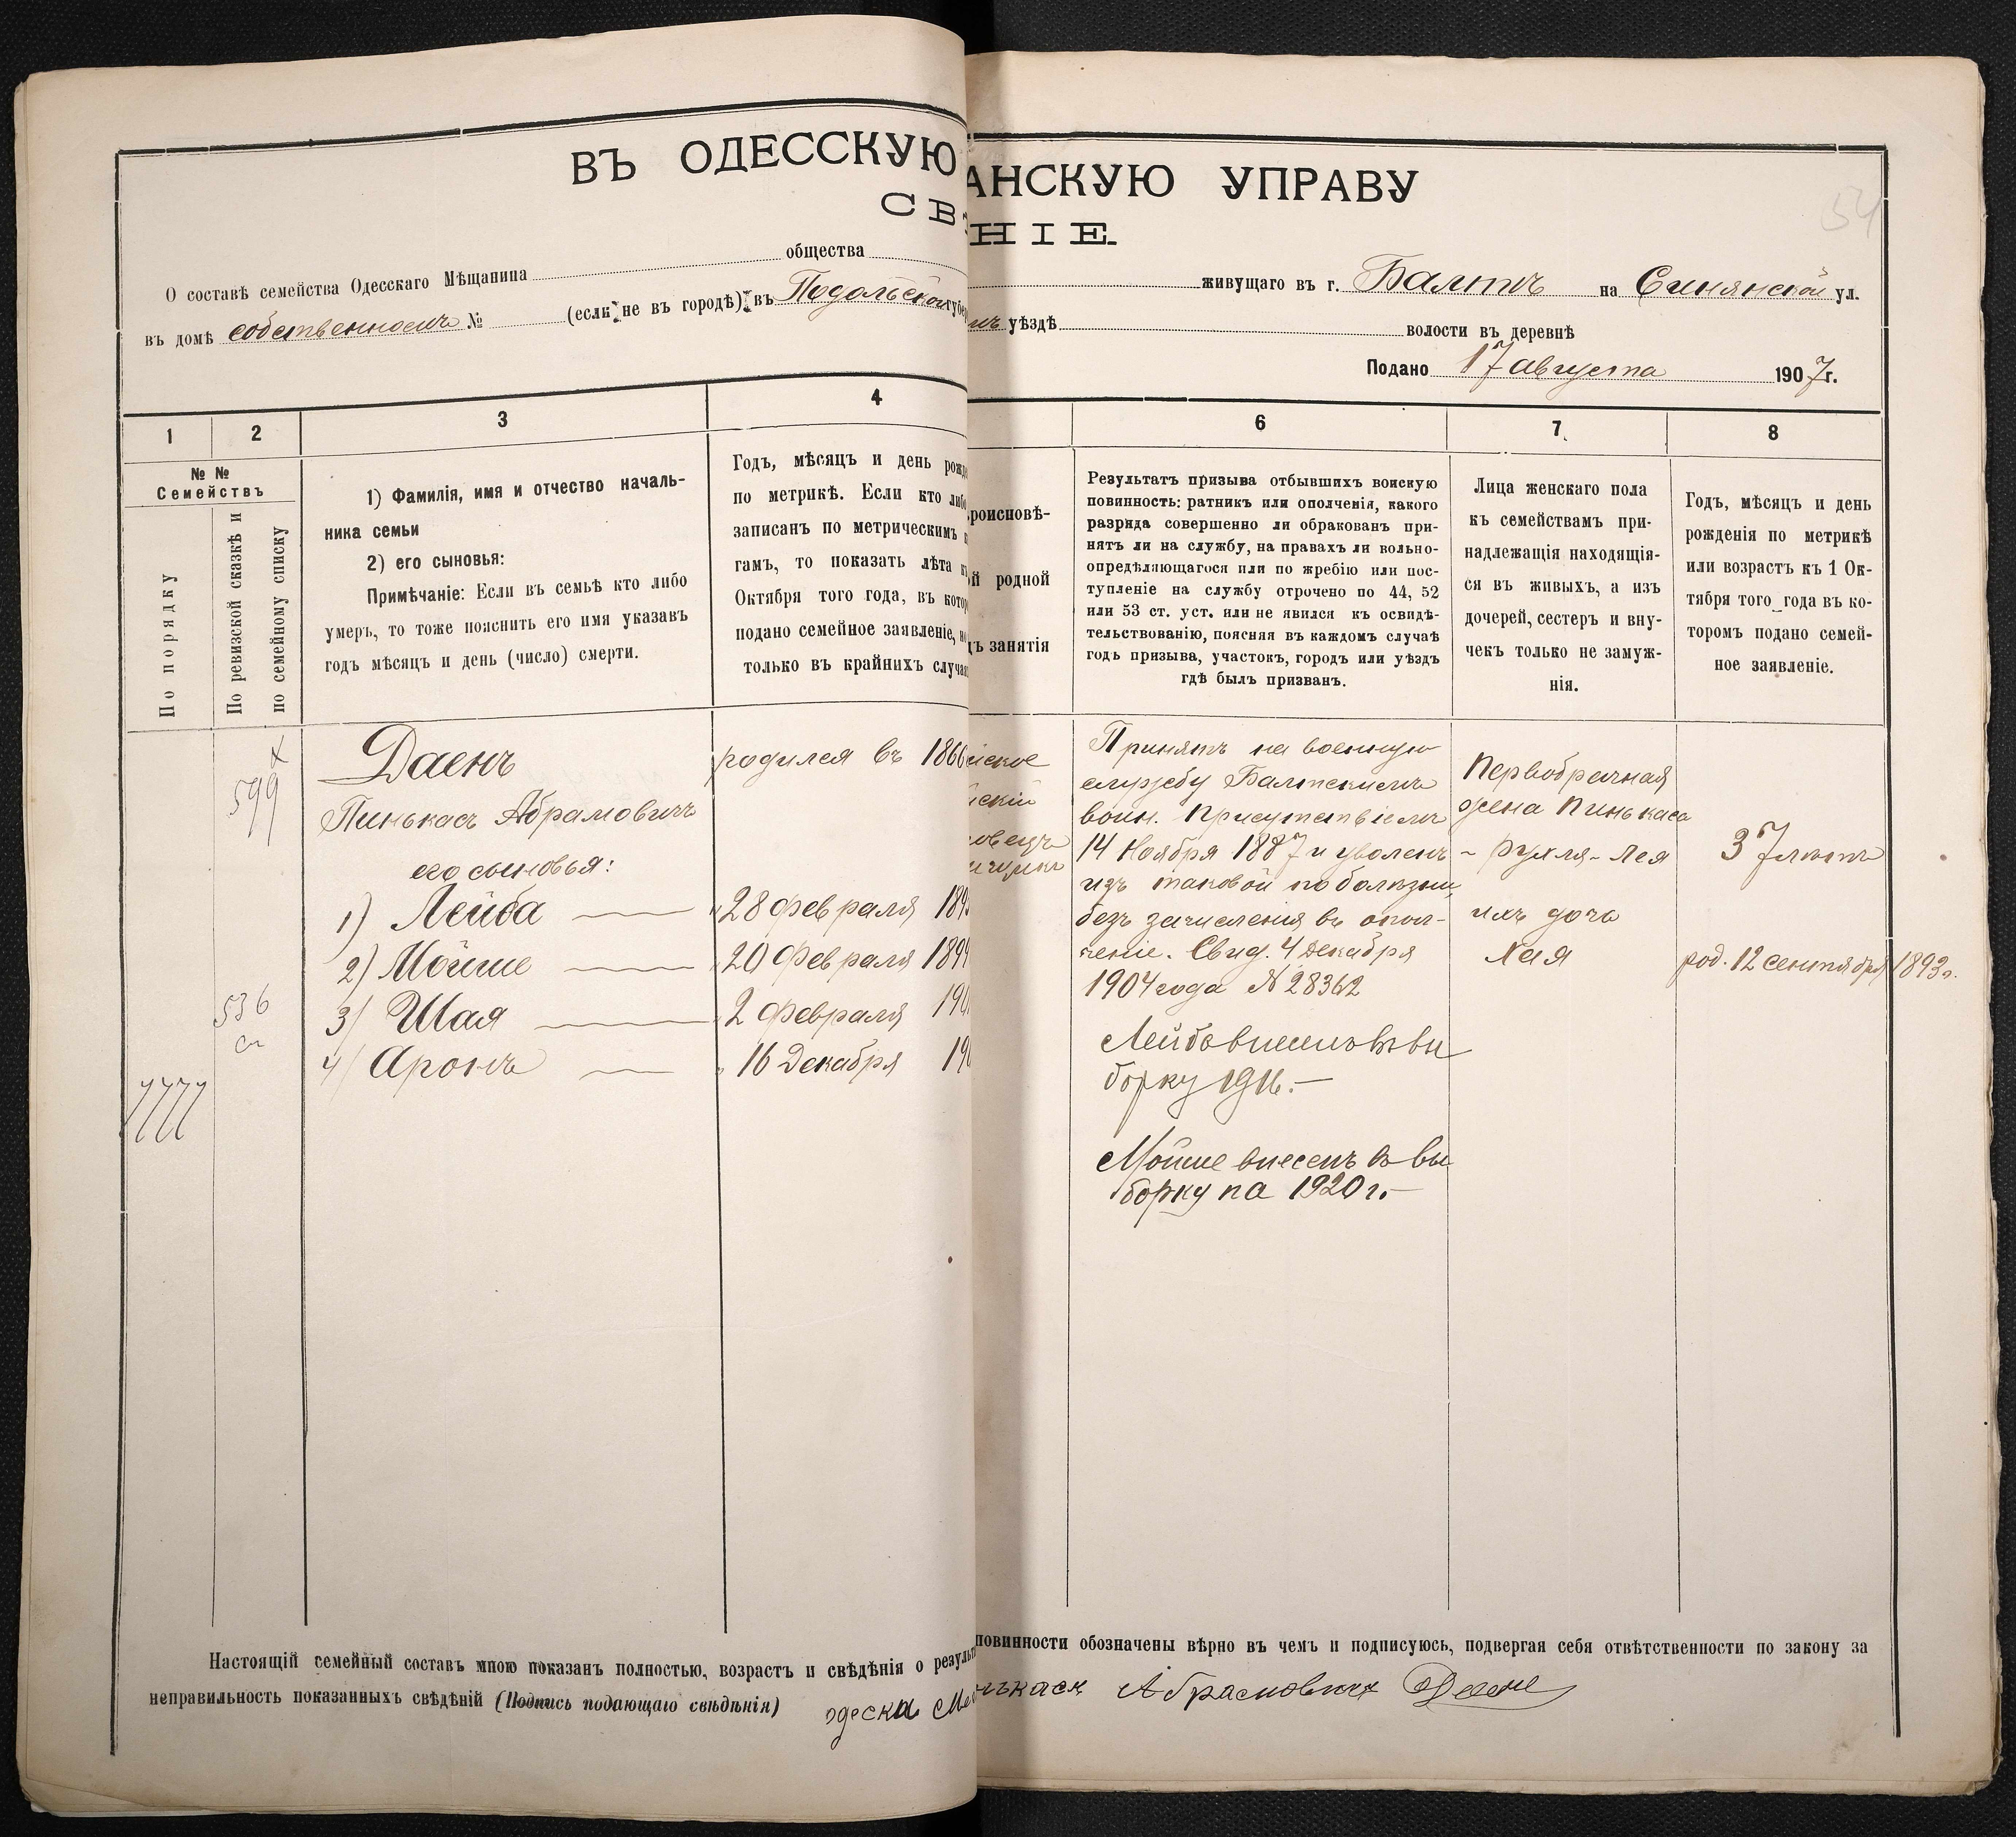 ВЪ ОДЕССКУЮ
АНСКУЮ УПРАВУ
СВ
НІЕ.
54
О составѣ семейства Одесскаго Мѣщанина общества
живущаго въ г. Балтѣ на Синянской ул.
въ домѣ собственномъ № (если не въ городѣ) въ Подольской губе
уѣздѣ волости въ деревнѣ
Подано 17 августа 1907 г.
1 2 3 4
6 7. 8
№ №
Семействъ
По порядку
По ревизской сказкѣ и
по семейному списку
1) Фамилія, имя и отчество началь-
ника семьи
2) его сыновья:
Примѣчаніе: Если въ семьѣ кто либо
умеръ, то тоже пояснить его имя указавъ
годъ мѣсяцъ и день (число) смерти.
Годъ, мѣсяцъ и день рожд
по метрикѣ. Если кто либо
записанъ по метрическимъ
гамъ, то показать лѣта
Октября того года, въ котор
подано семейное заявленіе, но
только въ крайнихъ случа
роисновѣ-
й родной
ъ занятія
Результатъ призыва отбывшихъ воискую
повинность: ратникъ или ополченія, какого
разряда совершенно ли обракованъ при-
нятъ ли на службу, на правахъ ли вольно-
опредѣляющагося или по жребію или пос-
тупленіе на службу отрочено по 44, 52
или 53 ст. уст. или не явился къ освидѣ-
тельствованію, поясняя въ каждомъ случаѣ
годъ призыва, участокъ, городъ или уѣздъ
гдѣ былъ призванъ.
Лица женскаго пола
къ семействамъ при-
надлежащія находящія-
ся въ живыхъ, а изъ
дочерей, сестеръ и вну-
чекъ только не замуж-
нія.
Годъ, мѣсяцъ и день
рожденія по метрикѣ
или возрастъ къ 1 Ок-
тября того года въ ко-
торомъ подано семей-
ное заявленіе.
599
536
7777
Даенъ
Пинькасъ Абрамовичъ
его сыновья:
1) Лейба
2) Мойше
3) Шая
4) Аронъ
родился въ 1866
28 февраля 189
20 февраля 1899
2 февраля 190
16 Декабря 19
йское
йскій
Принятъ на военную
службу Балтскимъ
воин. Присутствіемъ
14 Ноября 1887 и уволенъ
изъ таковой по болѣзни,
безъ зачисленія въ опол-
ченіе. Свид. 4 Декабря
1904 года № 28362
Лейба внесенъ въ вы
борку 1916.—
Мойше внесенъ въ вы
борку на 1920 г.—
Первобрачная
жена Пинькаса
- Рухля-Лея
ихъ дочь
Хая
37 лѣтъ
род. 12 сентября 1893 г.
Настоящій семейный составъ мною показанъ полностью, возрастъ и свѣдѣнія о резуль
повинности обозначены вѣрно въ чемъ и подписуюсь, подвергая себя отвѣтственности по закону за
неправильность показанныхъ свѣдѣній (Подпись подающаго свѣдѣнія) одеска Ме
нькася Абрамовичъ Даенъ